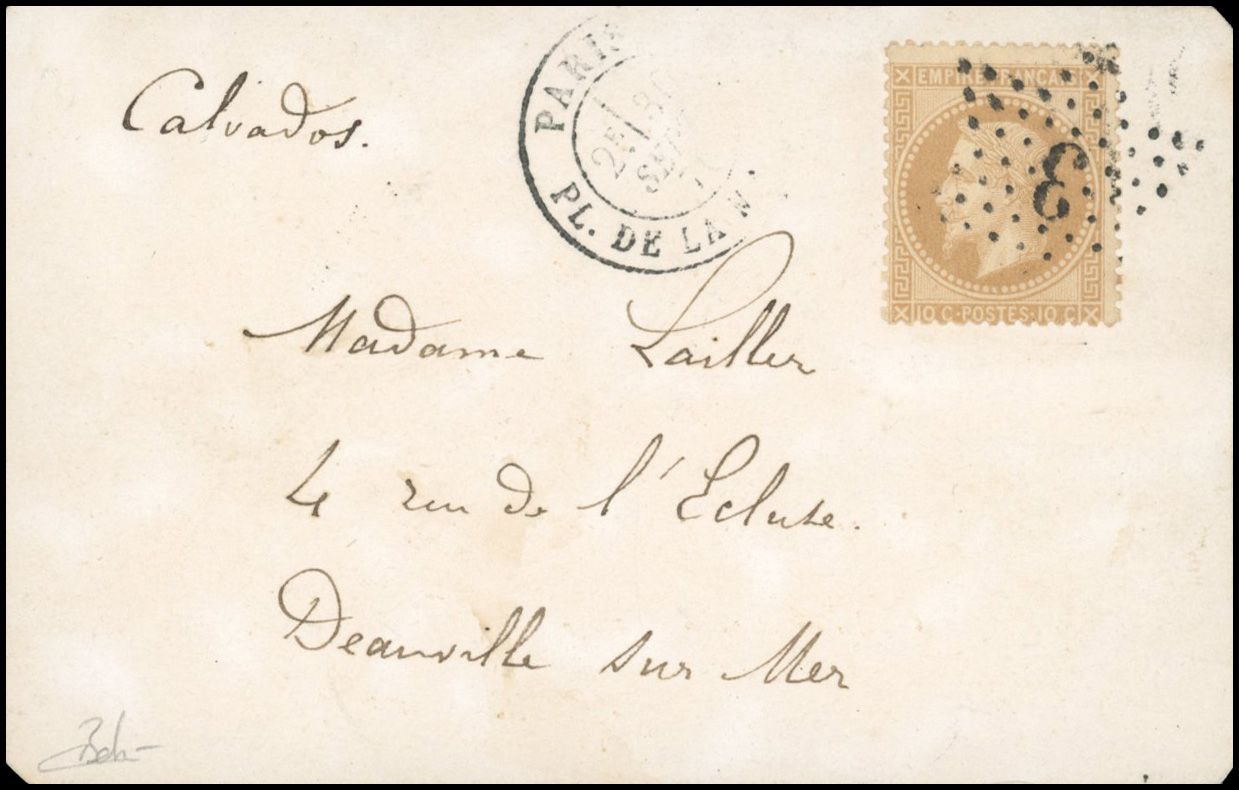 Calvados.
PARIS
2E/ 30
SEPT
PL. DE LA
EMPIRE FRANÇAIS
3
10 C · POSTES · 10 C
Madame Lailler
4 rue de l'Ecluse.
Deauville sur Mer